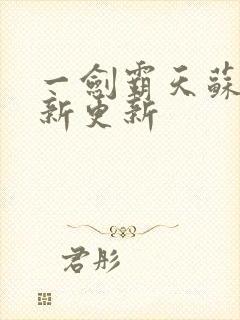 一劍霸天蘇
新更新
君彤